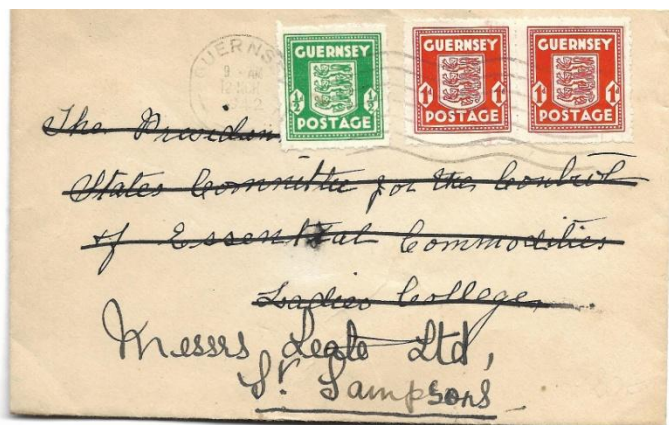 GUERNSEY
½ ½
POSTAGE
GUERNSEY
1D 1D
POSTAGE
GUERNSEY
1D 1D
POSTAGE
The President
States Committee for the Control
of Essential Commodities
Ladies College,
Messrs Leale Ltd,
St Sampsons